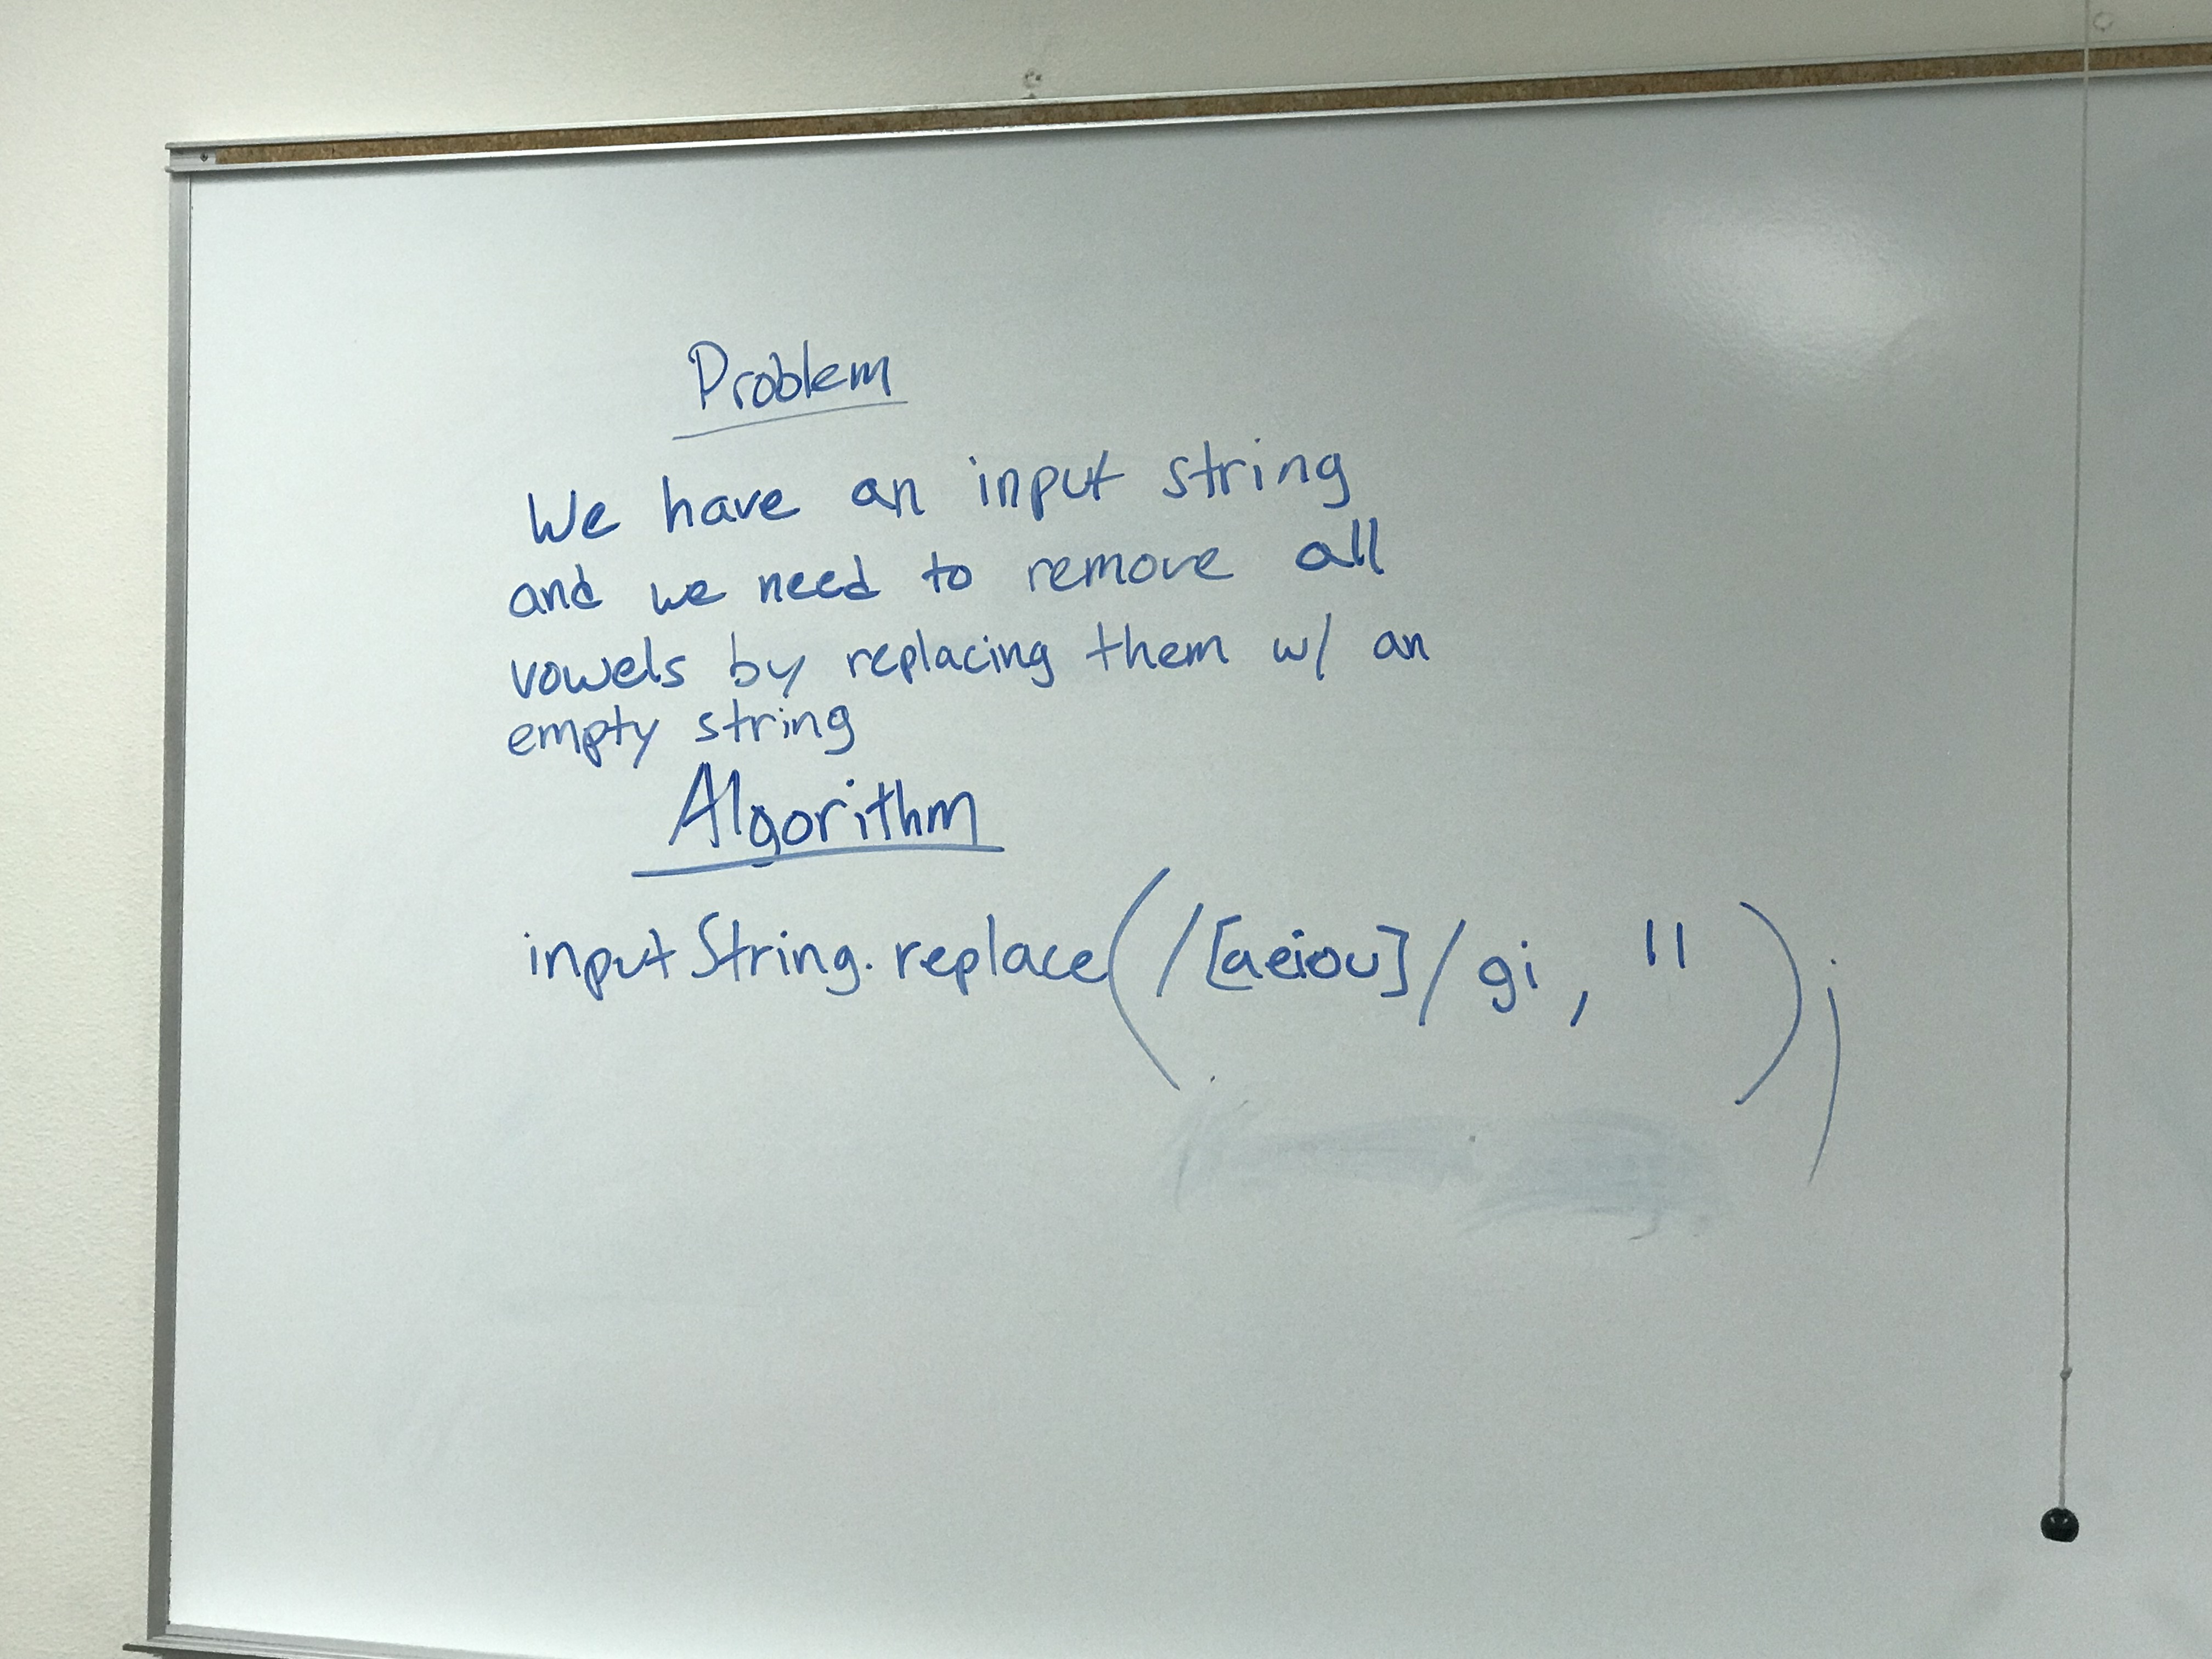 Problem
We have an input string
and we need to remove all
vowels by replacing them w/ an
empty string
Algorithm
inputString.replace(/[aeiou]/gi, '');